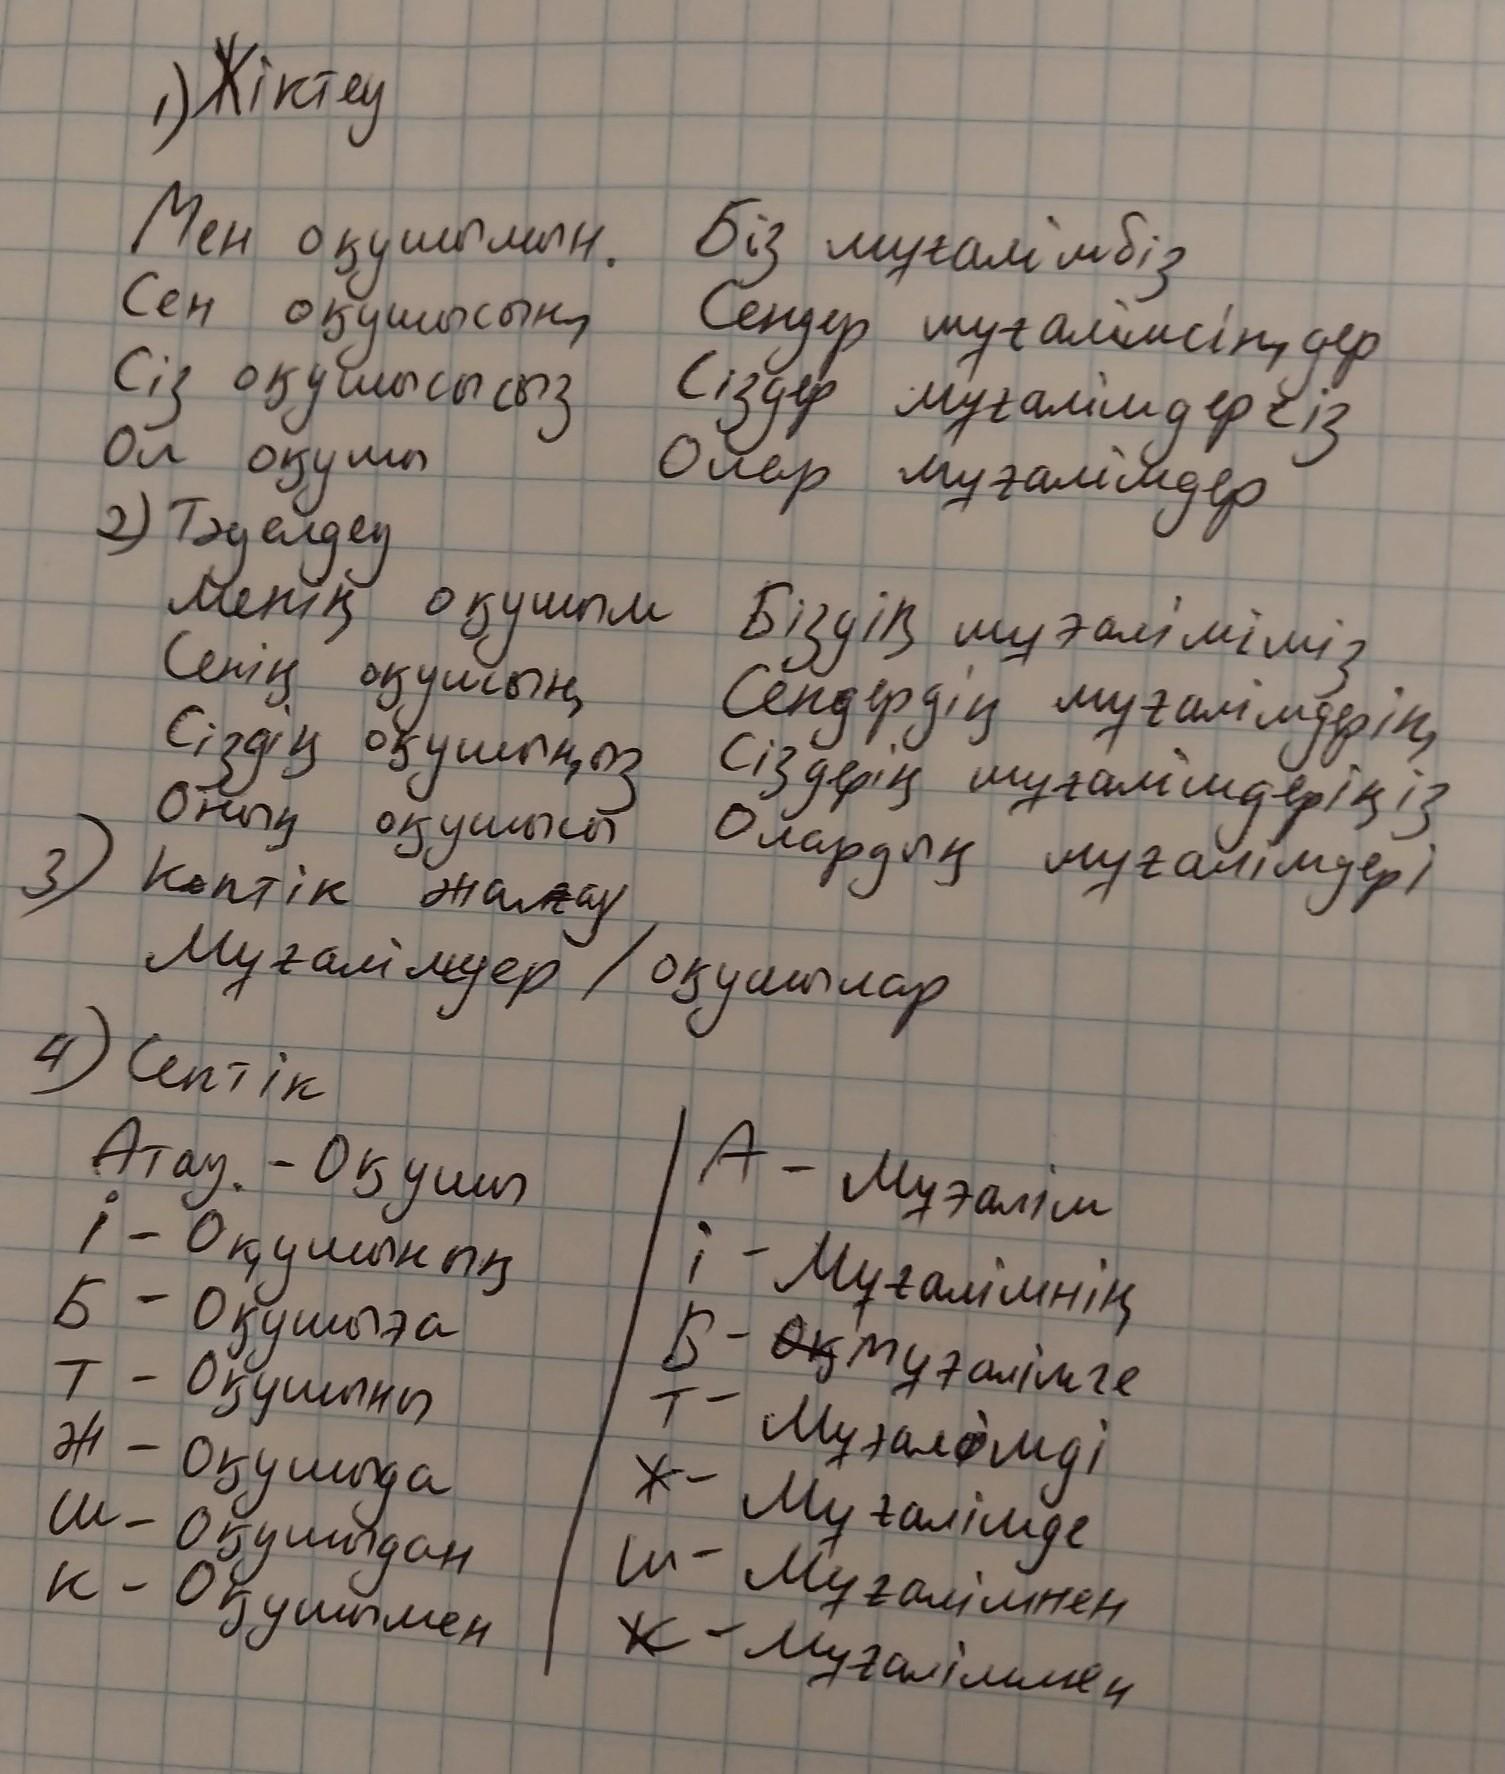 1) Жіктеу
Мен оқушымын. Біз мұғалімбіз
Сен оқушысың Сендер мұғалімсіңдер
Сіз оқушысысыз Сіздер мұғалімдерсіз
Ол оқушы Олар мұғалімдер
2) Тәуелдеу
Менің оқушым Біздің мұғаліміміз
Сенің оқушың Сендердің мұғалімдерің
Сіздің оқушыңыз Сіздерің мұғалімдеріңіз
Оның оқушысы Олардың мұғалімдері
3) Көптік жалғау
Мұғалімдер / оқушылар
4) Септік
Атау. - Оқушы | А - Мұғалім
і - Оқушының | і - Мұғалімнің
Б - Оқушыға | Б - Мұғалімге
Т - Оқушыны | Т - Мұғалімді
Ж - Оқушыда | Ж - Мұғалімде
Ш - Оқушыдан | Ш - Мұғалімнен
К - Оқушымен | К - Мұғаліммен